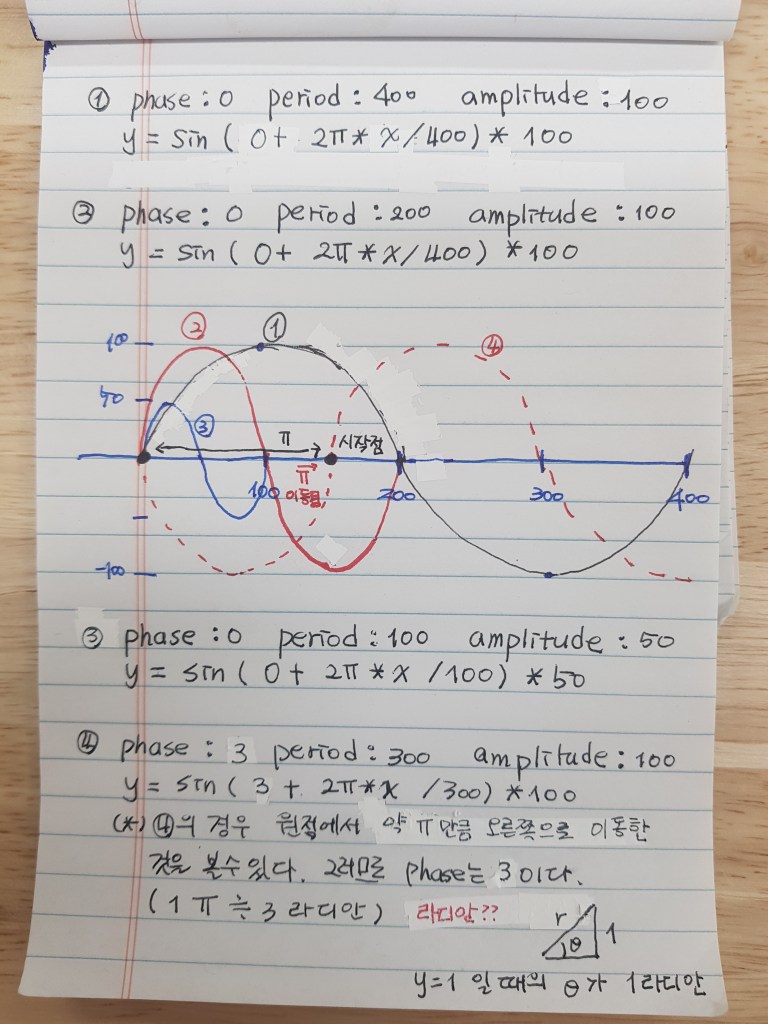 ① phase : 0 period : 400 amplitude : 100
y = sin ( 0 + 2π * x / 400 ) * 100
② phase : 0 period : 200 amplitude : 100
y = sin ( 0 + 2π * x / 400 ) * 100
② ① ④
100
50
③ π 시작점
π 이동됨
100 200 300 400
-100
③ phase : 0 period : 100 amplitude : 50
y = sin ( 0 + 2π * x / 100 ) * 50
④ phase : 3 period : 300 amplitude : 100
y = sin ( 3 + 2π * x / 300 ) * 100
(*) ④의 경우 원점에서 약 π 만큼 오른쪽으로 이동한
것을 볼수 있다. 그러므로 phase는 3 이다.
( 1 π ≒ 3 라디안 ) 라디안??
r 1
θ
y=1 일 때의 θ 가 1라디안